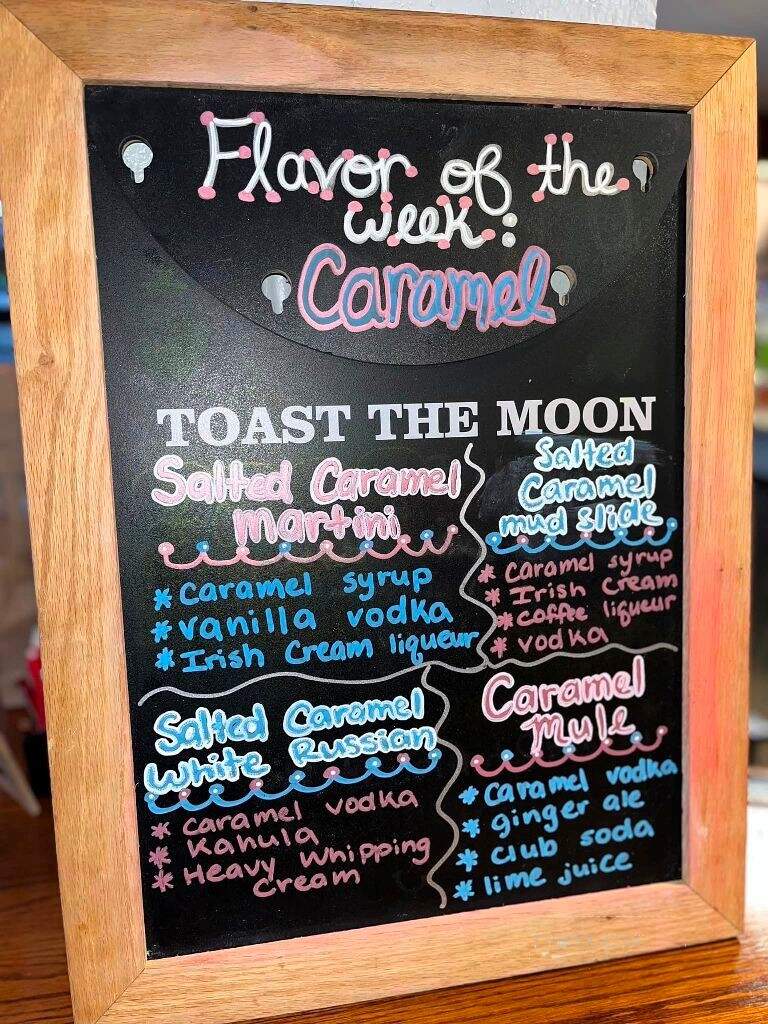 Flavor of the
week:
Caramel
TOAST THE MOON
Salted Caramel
martini
* caramel syrup
* vanilla vodka
* Irish Cream liqueur
Salted
Caramel
mud slide
* caramel syrup
* Irish Cream
* coffee liqueur
* vodka
Salted Caramel
White Russian
* caramel vodka
* Kahula
* Heavy Whipping
Cream
Caramel
mule
* caramel vodka
* ginger ale
* club soda
* lime juice